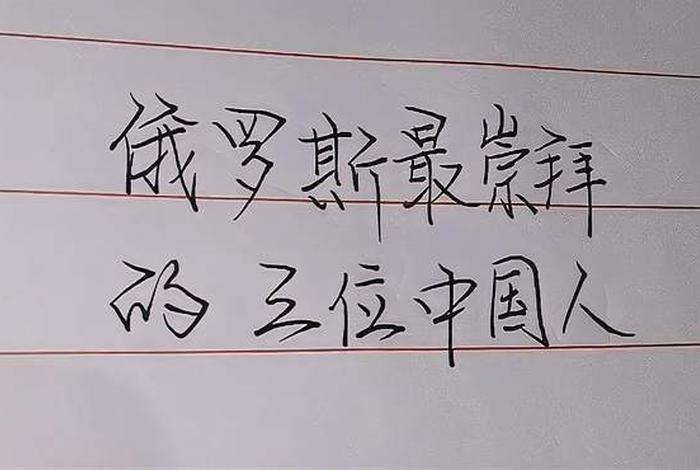 俄罗斯最崇拜
的三位中国人